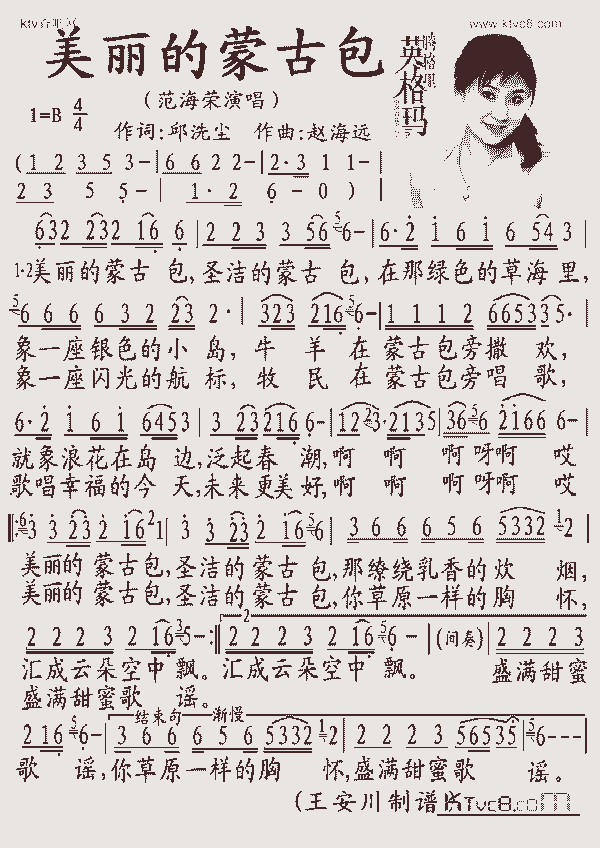 www.ktvc8.com
美丽的蒙古包
英格玛
(范海荣演唱)
1=B 4/4
作词:邱洗尘 作曲:赵海远
(1 2 3 5 3- | 6 6 2 2- | 2·3 1 1- |
2 3 5 5- | 1·2 6 - 0 ) |
632 232 16 6 | 2 2 3 3 56 56- | 6·2 1 6 1 6 54 3 |
1·2美丽的蒙古 包,圣洁的蒙古 包,在那绿色的草海 里,
56 6 6 6 3 2 23 2· | 323 216 56- | 1 1 1 2 665335· |
象一座银色的小 岛, 牛 羊 在 蒙古包旁撒 欢,
象一座闪光的航 标, 牧 民 在 蒙古包旁唱 歌,
6·2 1 6 1 6453 | 3 23216 6- | 12 23·2135 | 36 56 2166 6- |
就象浪花在岛 边,泛起春 潮,啊 啊 啊 呀啊 哎
歌唱幸福的今 天,未来更美好,啊 啊 啊 呀啊 哎
63 3 23 2 16 21 | 3 3 23 2 16 56 | 3 6 6 6 5 6 5332 12 |
美丽的 蒙古包,圣洁的 蒙古 包,那缭绕乳香的炊 烟,
美丽的 蒙古包,圣洁的 蒙古 包,你草原一样的胸 怀,
2 2 2 3 2 16 35- :| 2 2 2 2 3 2 16 56 - | (间奏) | 2 2 2 3
汇成云朵空中 飘。汇成云朵空中 飘。 盛满甜蜜
盛满甜蜜歌 谣。
结束句 渐慢
2 16 56- | 3 6 6 6 5 6 5332 12 | 2 2 2 3 56535 | 56--- |
歌 谣,你草原一样的胸 怀,盛满甜蜜歌 谣。
(王安川制谱 KTvc8.com